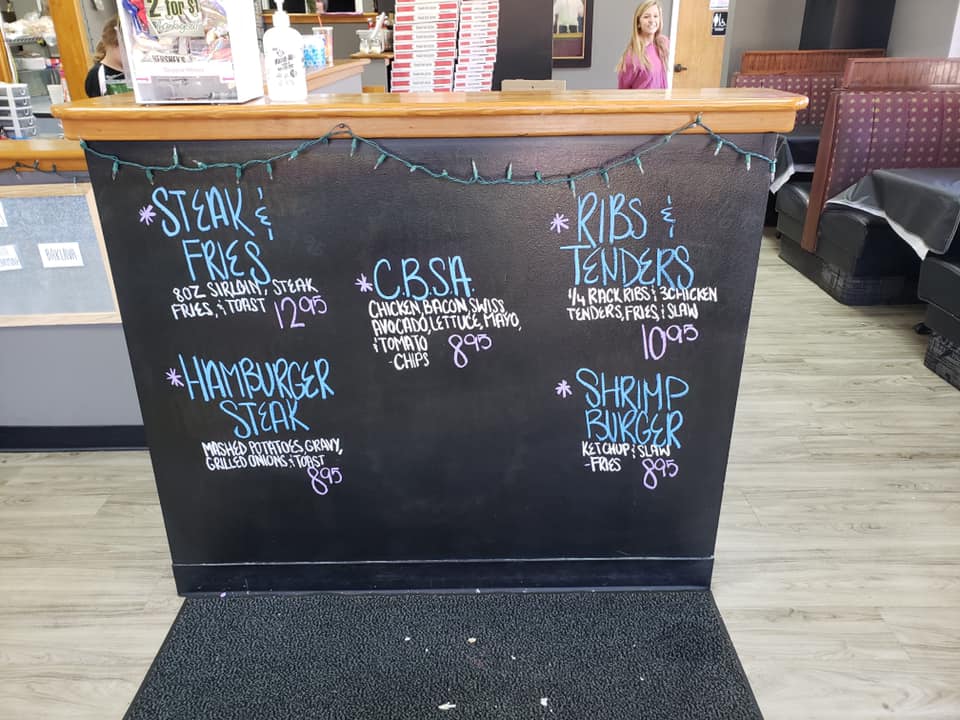 2 FOR $1
HERSHEY'S
BAKLAVA
*STEAK &
FRIES
8OZ SIRLOIN STEAK
FRIES, & TOAST 12.95
*HAMBURGER
STEAK
MASHED POTATOES, GRAVY,
GRILLED ONIONS, & TOAST
8.95
*C.B.S.A.
CHICKEN, BACON, SWISS
AVOCADO, LETTUCE, MAYO,
& TOMATO
-CHIPS 8.95
*RIBS &
TENDERS
1/4 RACK RIBS & 3 CHICKEN
TENDERS, FRIES, & SLAW
10.95
*SHRIMP
BURGER
KETCHUP & SLAW
-FRIES 8.95